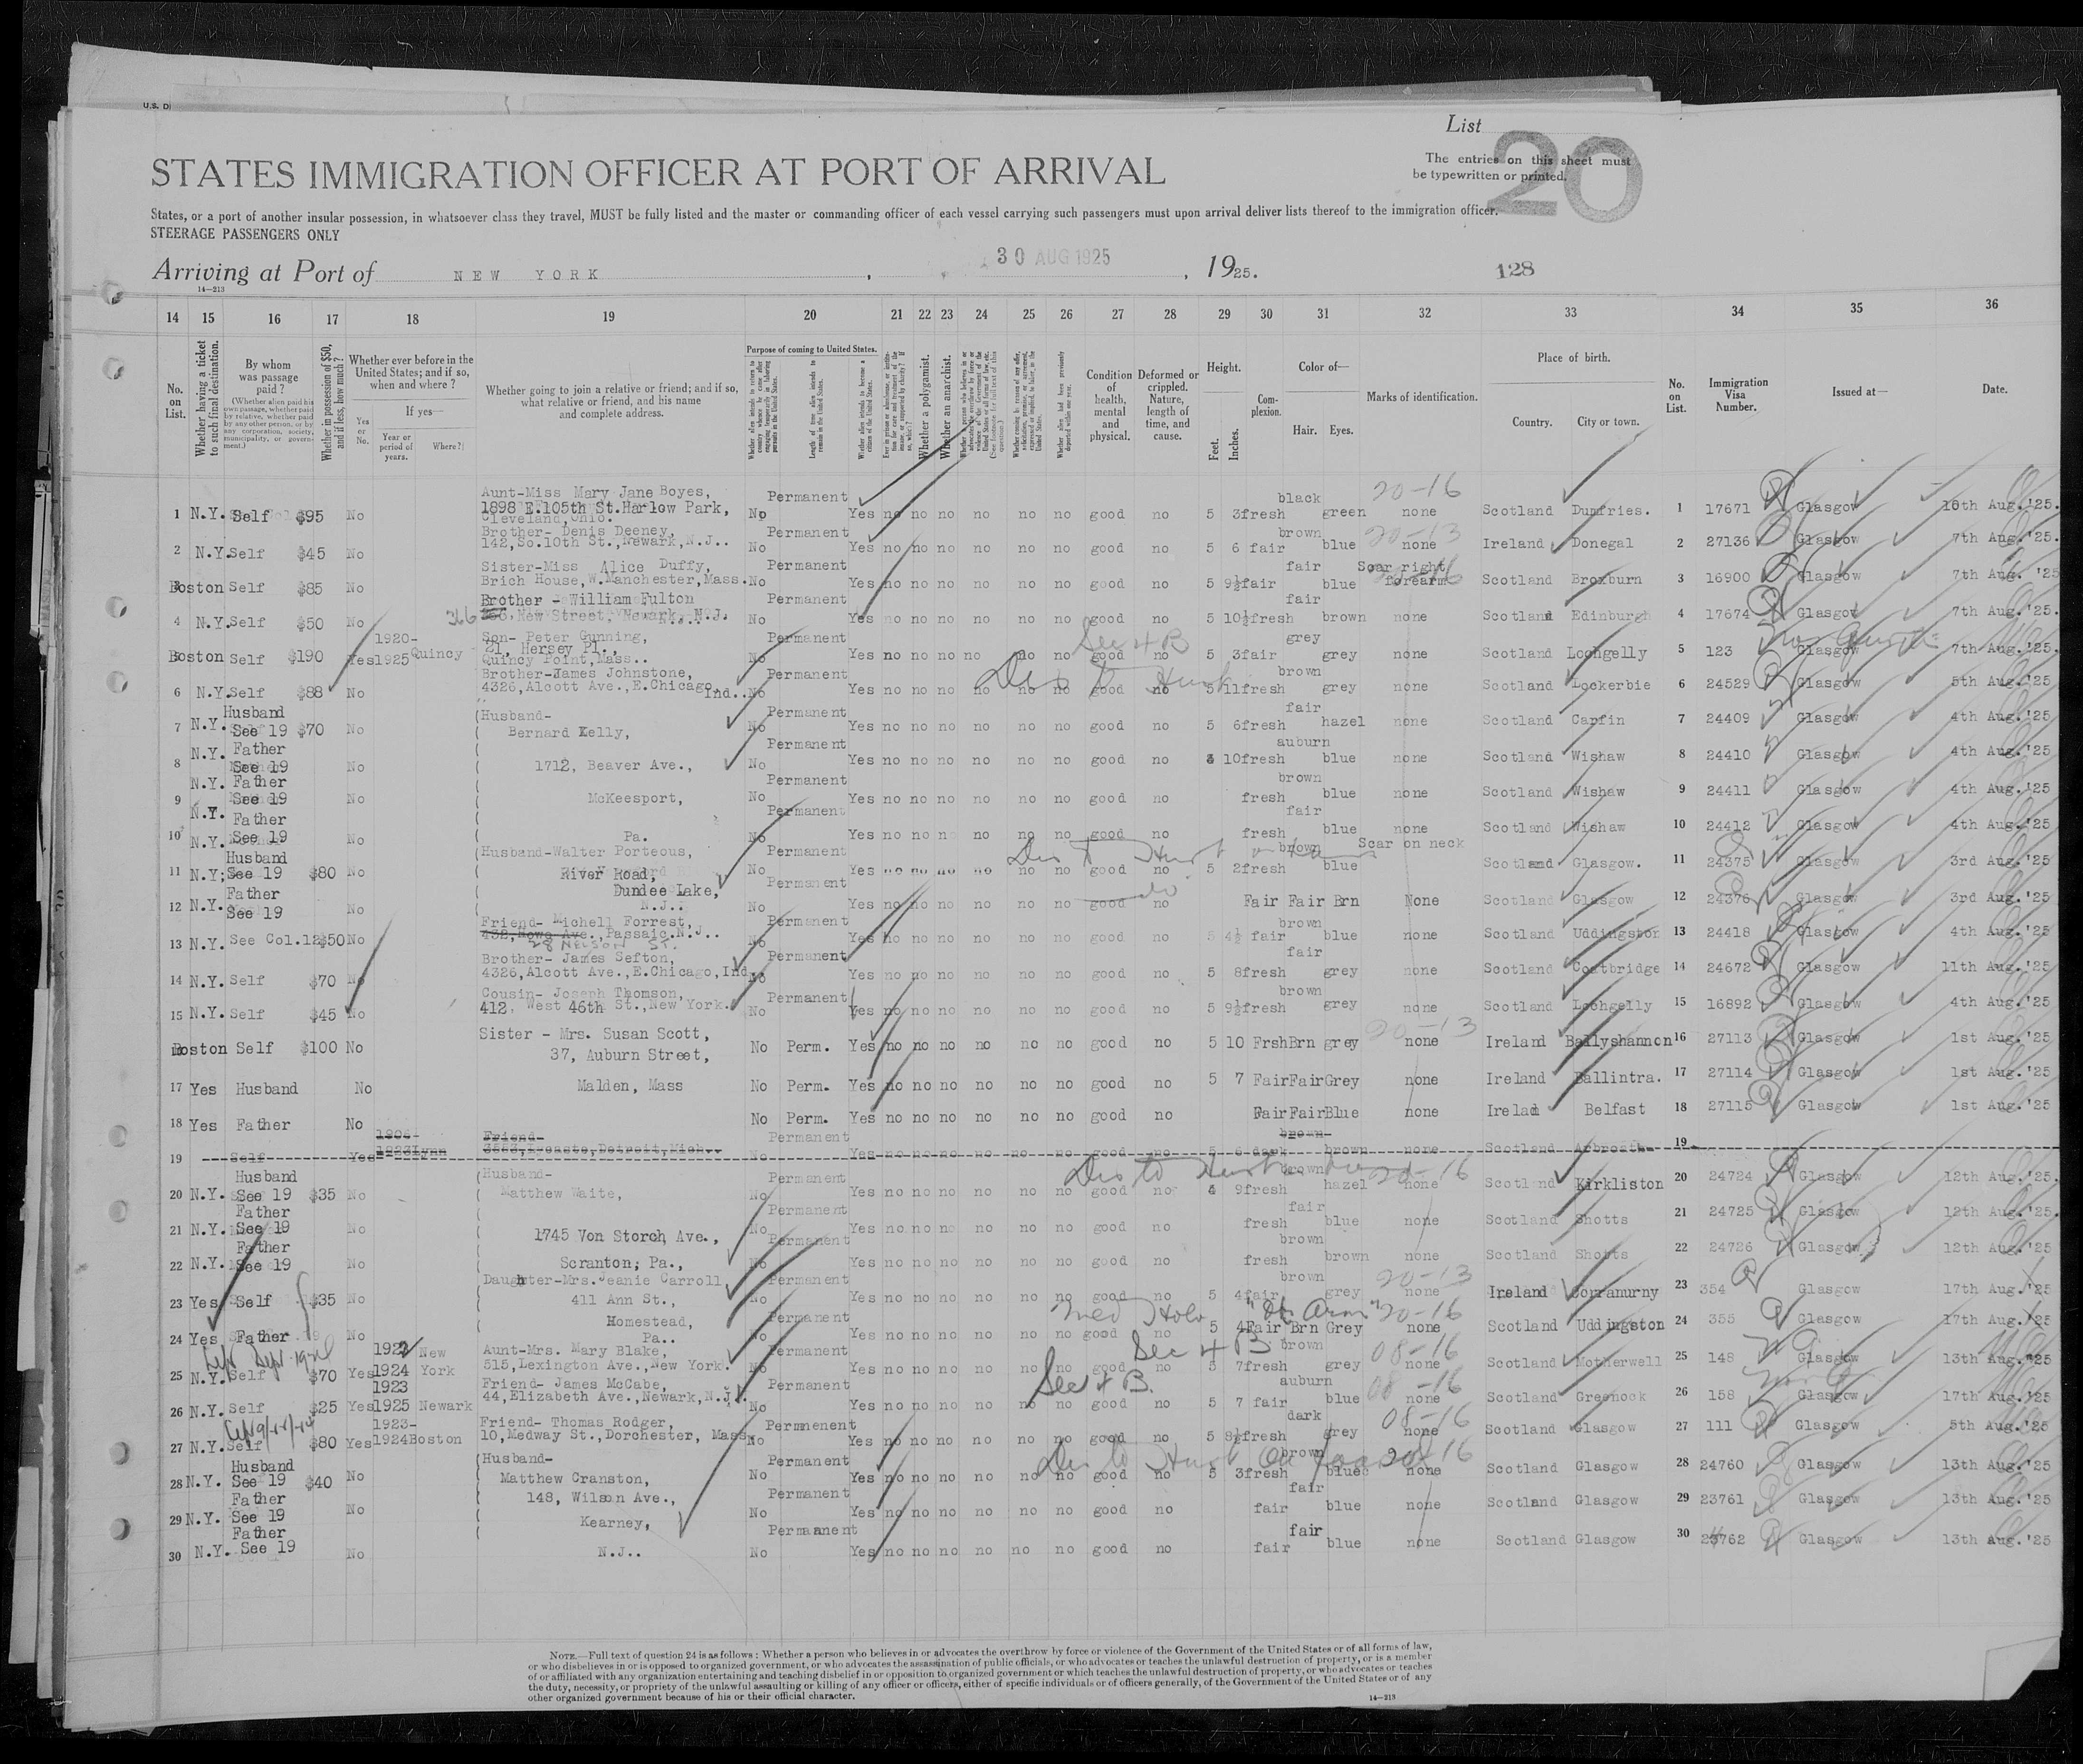 U.S. D
List
20
The entries on this sheet must
be typewritten or printed.
STATES IMMIGRATION OFFICER AT PORT OF ARRIVAL
States, or a port of another insular possession, in whatsoever class they travel, MUST be fully listed and the master or commanding officer of each vessel carrying such passengers must upon arrival deliver lists thereof to the immigration officer.
STEERAGE PASSENGERS ONLY
Arriving at Port of NEW YORK, 30 AUG 1925, 1925. 128
14—213
14 15 16 17 18 19 20 21 22 23 24 25 26 27 28 29 30 31 32 33 34 35 36
No. on List.
Whether having a ticket to such final destination.
By whom was passage paid?
(Whether alien paid his own passage, whether paid by relative, whether paid by any other person, or by any corporation, society, municipality, or government.)
Whether in possession of $50, and if less, how much?
Whether ever before in the United States; and if so, when and where?
Yes or No.
If yes—
Year or period of years.
Where?
Whether going to join a relative or friend; and if so, what relative or friend, and his name and complete address.
Purpose of coming to United States.
Whether alien intends to return to country whence he came after engaging temporarily in laboring pursuits in the United States.
Length of time alien intends to remain in the United States.
Whether alien intends to become a citizen of the United States.
Whether a polygamist.
Whether an anarchist.
Condition of health, mental and physical.
Deformed or crippled. Nature, length of time, and cause.
Height.
Feet. Inches.
Complexion.
Color of—
Hair. Eyes.
Marks of identification.
Place of birth.
Country. City or town.
No. on List.
Immigration Visa Number.
Issued at—
Date.
1 N.Y. Self $95 No Aunt-Miss Mary Jane Boyes, 1898 E.105th St.Harlow Park, Cleveland,Ohio. No Permanent Yes no no no no no no good no 5 3 fresh black green none 20-16 Scotland Dumfries. 1 17671 Glasgow 10th Aug.'25.
2 N.Y. Self $45 No Brother- Denis Deeney, 142,So.10th St.,Newark,N.J.. No Permanent Yes no no no no no no good no 5 6 fair brown blue none 20-13 Ireland Donegal 2 27136 Glasgow 7th Aug.'25.
3 Boston Self $85 No Sister-Miss Alice Duffy, Brich House,W.Manchester,Mass. No Permanent Yes no no no no no no good no 5 9½ fair fair blue Scar right forearm Scotland Broxburn 3 16900 Glasgow 7th Aug. '25
4 N.Y. Self $50 No Brother - William Fulton 366, New Street, Newark, N.J. No Permanent Yes no no no no no no good no 5 10½ fresh fair brown none Scotland Edinburgh 4 17674 Glasgow 7th Aug.'25.
5 Boston Self $190 Yes 1920-1925 Quincy Son- Peter Gunning, 21, Hersey Pl., Quincy Point,Mass.. No Permanent Yes no no no no no no good no Sec 4 B 5 3 fair grey grey none Scotland Lochgelly 5 123 Glasgow 7th Aug.'25.
6 N.Y. Self $88 No Brother-James Johnstone, 4326,Alcott Ave.,E.Chicago Ind.. No Permanent Yes no no no no no no good no 5 11 fresh brown grey none Scotland Lockerbie 6 24529 Glasgow 5th Aug.'25
7 N.Y. Husband See 19 $70 No Husband- Bernard Kelly, No Permanent Yes no no no no no no good no 5 6 fresh fair hazel none Scotland Carfin 7 24409 Glasgow 4th Aug.'25
8 N.Y. Father See 19 No 1712, Beaver Ave., No Permanent Yes no no no no no no good no 3 10 fresh auburn blue none Scotland Wishaw 8 24410 Glasgow 4th Aug.'25
9 N.Y. Father See 19 No McKeesport, No Permanent Yes no no no no no no good no fresh brown blue none Scotland Wishaw 9 24411 Glasgow 4th Aug.'25
10 N.Y. Father See 19 No Pa. No Permanent Yes no no no no no no good no fresh fair blue none Scotland Wishaw 10 24412 Glasgow 4th Aug.'25
11 N.Y. Husband See 19 $80 No Husband-Walter Porteous, River Road, No Permanent Yes no no no no no no good no 5 2 fresh brown blue Scar on neck Scotland Glasgow. 11 24375 Glasgow 3rd Aug.'25
12 N.Y. Father See 19 No Dundee Lake, N.J.. No Permanent Yes no no no no no no good no Fair Fair Brn None Scotland Glasgow 12 24376 Glasgow 3rd Aug.'25
13 N.Y. See Col.12 $50 No Friend- Michell Forrest, 432,Howe Ave., Passaic,N.J.. 28 NELSON ST. No Permanent Yes no no no no no no good no 5 4½ fair brown blue none Scotland Uddingston 13 24418 Glasgow 4th Aug.'25
14 N.Y. Self $70 No Brother- James Sefton, 4326,Alcott Ave.,E.Chicago,Ind. No Permanent Yes no no no no no no good no 5 8 fresh fair grey none Scotland Coatbridge 14 24672 Glasgow 11th Aug.'25
15 N.Y. Self $45 No Cousin- Joseph Thomson, 412, West 46th St.,New York. No Permanent Yes no no no no no no good no 5 9½ fresh brown grey none Scotland Lochgelly 15 16892 Glasgow 4th Aug.'25
16 Boston Self $100 No Sister - Mrs. Susan Scott, 37, Auburn Street, No Perm. Yes no no no no no no good no 5 10 Frsh Brn grey none 20-13 Ireland Ballyshannon 16 27113 Glasgow 1st Aug.'25
17 Yes Husband No Malden, Mass No Perm. Yes no no no no no no good no 5 7 Fair Fair Grey none Ireland Ballintra. 17 27114 Glasgow 1st Aug.'25
18 Yes Father No No Perm. Yes no no no no no no good no Fair Fair Blue none Irelad Belfast 18 27115 Glasgow 1st Aug.'25
19 Self Yes 1923 Lynn Friend- Detroit,Mich.. No Permanent Yes no no no no no no good no 5 6 dark brown brown none Scotland Arbroath 19
20 N.Y. Husband See 19 $35 No Husband- Matthew Waite, No Permanent Yes no no no no no no good no 4 9 fresh brown hazel none 20-16 Scotland Kirkliston 20 24724 Glasgow 12th Aug.'25.
21 N.Y. Father See 19 No 1745 Von Storch Ave., No Permanent Yes no no no no no no good no fresh fair blue none Scotland Shotts 21 24725 Glasgow 12th Aug.'25.
22 N.Y. Father See 19 No Scranton, Pa., No Permanent Yes no no no no no no good no fresh brown brown none Scotland Shotts 22 24726 Glasgow 12th Aug.'25
23 Yes Self $35 No Daughter-Mrs.Jeanie Carroll 411 Ann St., No Permanent Yes no no no no no no good no 5 4 fair brown grey none 20-13 Ireland Corranurny 23 354 Glasgow 17th Aug.'25
24 Yes Father No Homestead, Pa.. No Permanent Yes no no no no no no good no 5 4 Fair Brn Grey none 20-16 Scotland Uddingston 24 355 Glasgow 17th Aug.'25
25 N.Y. Self $70 Yes 1922 1924 New York Aunt-Mrs. Mary Blake, 515,Lexington Ave.,New York. No Permanent Yes no no no no no no good no Sec 4 B 5 7 fresh brown grey none 08-16 Scotland Motherwell 25 148 Glasgow 13th Aug.'25
26 N.Y. Self $25 Yes 1923 1925 Newark Friend- James McCabe, 44,Elizabeth Ave.,Newark,N.J. No Permanent Yes no no no no no no good no Sec 4 B. 5 7 fair auburn blue none 08-16 Scotland Greenock 26 158 Glasgow 17th Aug.'25
27 N.Y. Self $80 Yes 1923-1924 Boston Friend- Thomas Rodger, 10,Medway St.,Dorchester, Mass. No Permnenent Yes no no no no no no good no 5 8½ fresh dark grey none 08-16 Scotland Glasgow 27 111 Glasgow 5th Aug.'25
28 N.Y. Husband See 19 $40 No Husband- Matthew Cranston, No Permanent Yes no no no no no no good no 5 3 fresh brown blue none Scotland Glasgow 28 24760 Glasgow 13th Aug.'25
29 N.Y. Father See 19 No 148, Wilson Ave., Kearney, No Permanent Yes no no no no no no good no fair fair blue none Scotland Glasgow 29 23761 Glasgow 13th Aug.'25
30 N.Y. Father See 19 No N.J.. No Permaanent Yes no no no no no no good no fair fair blue none Scotland Glasgow 30 23762 Glasgow 13th Aug.'25
NOTE.—Full text of question 24 is as follows: Whether a person who believes in or advocates the overthrow by force or violence of the Government of the United States or of all forms of law,
or who disbelieves in or is opposed to organized government, or who advocates the assassination of public officials, or who advocates or teaches the unlawful destruction of property, or is a member
of or affiliated with any organization entertaining and teaching disbelief in or opposition to organized government or which teaches the unlawful destruction of property, or who advocates or teaches
the duty, necessity, or propriety of the unlawful assaulting or killing of any officer or officers, either of specific individuals or of officers generally, of the Government of the United States or of any
other organized government because of his or their official character.
14—213